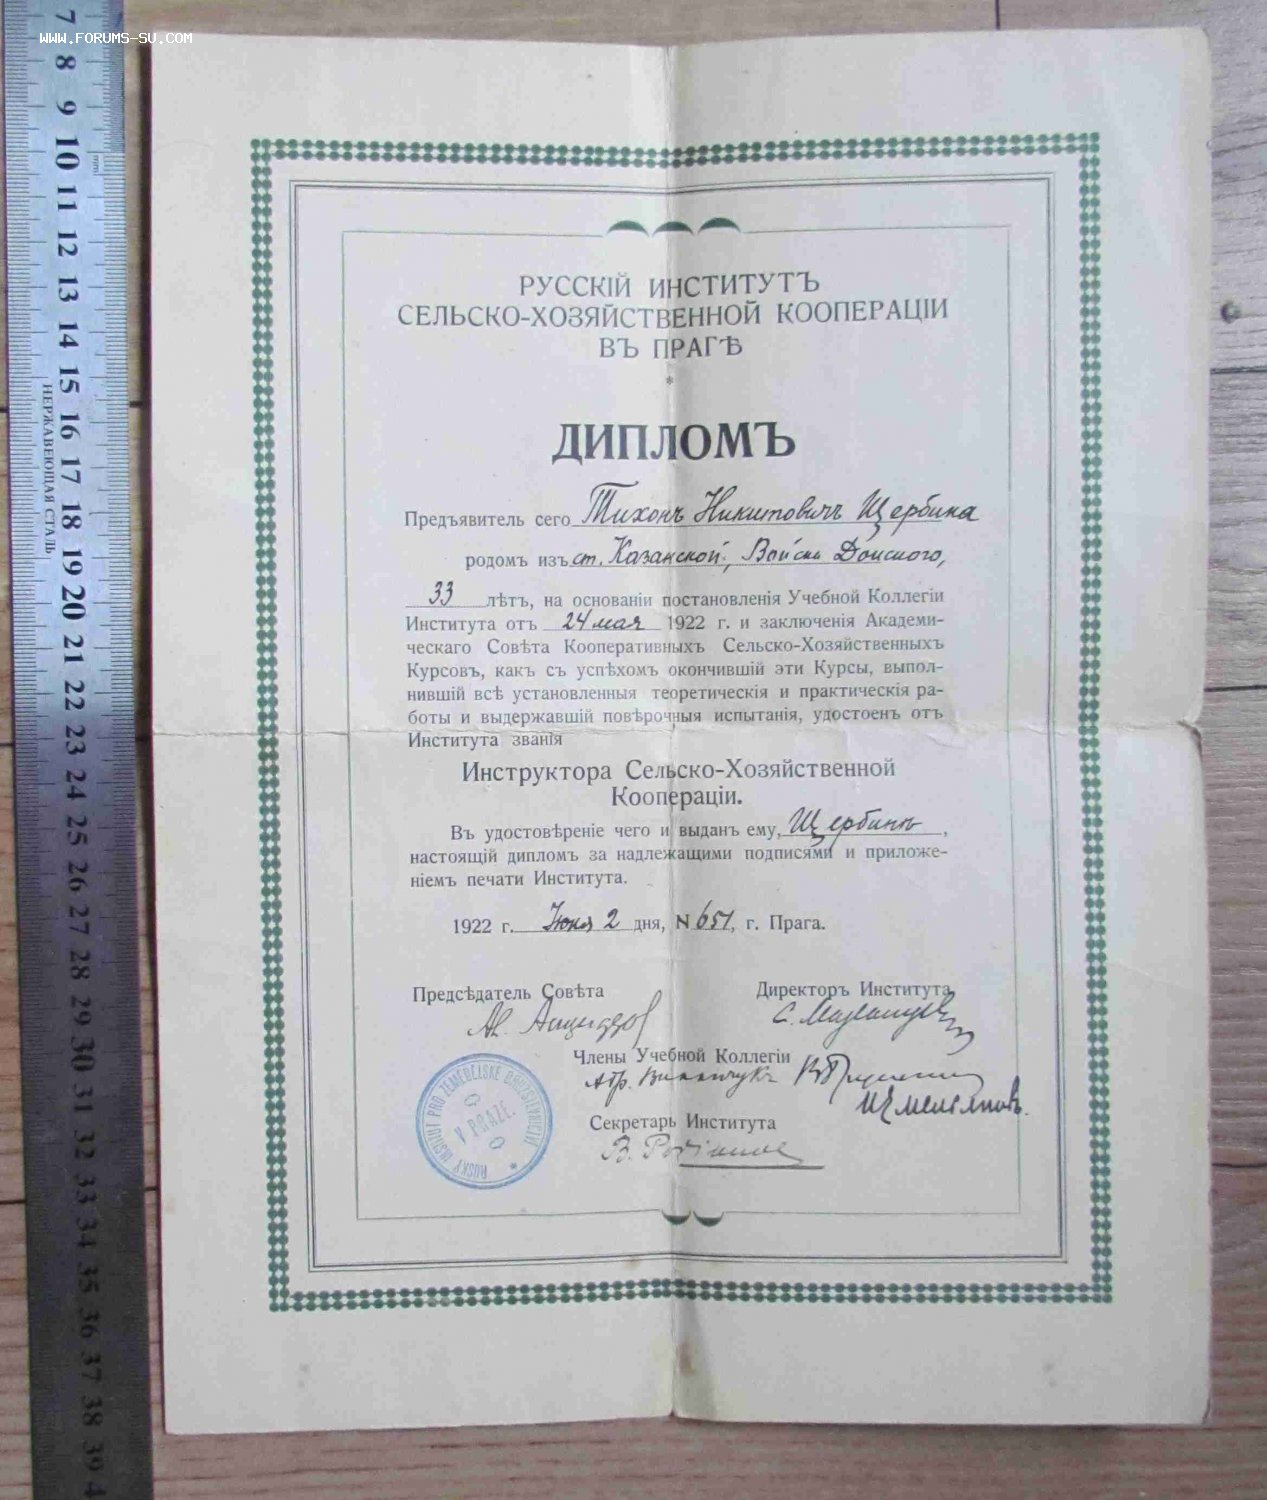 WWW.FORUMS-SU.COM
7
8
9
10
11
12
13
14
15
16
17
18
19
20
21
22
23
24
25
26
27
28
29
30
31
32
33
34
35
36
37
38
39
4
НЕРЖАВЕЮЩАЯ СТАЛЬ
mm
РУССКІЙ ИНСТИТУТЪ
СЕЛЬСКО-ХОЗЯЙСТВЕННОЙ КООПЕРАЦІИ
ВЪ ПРАГѢ
*
ДИПЛОМЪ
Предъявитель сего Тихонъ Никитовичъ Щербина
родомъ изъ ст. Казанской, Войска Донского,
33 лѣтъ, на основаніи постановленія Учебной Коллегіи
Института отъ 24 мая 1922 г. и заключенія Академи-
ческаго Совѣта Кооперативныхъ Сельско-Хозяйственныхъ
Курсовъ, какъ съ успѣхомъ окончившій эти Курсы, выпол-
нившій всѣ установленныя теоретическія и практическія ра-
боты и выдержавшій повѣрочныя испытанія, удостоенъ отъ
Института званія
Инструктора Сельско-Хозяйственной
Коопераціи.
Въ удостовѣреніе чего и выданъ ему, Щербинѣ,
настоящій дипломъ за надлежащими подписями и приложе-
ніемъ печати Института.
1922 г. Июня 2 дня, N 651, г. Прага.
Предсѣдатель Совѣта
Директоръ Института
Члены Учебной Коллегіи
Секретарь Института
RUSKÝ INSTITUT PRO ZEMĚDĚLSKÉ DRUŽSTEVNICTVÍ
V PRAZE.